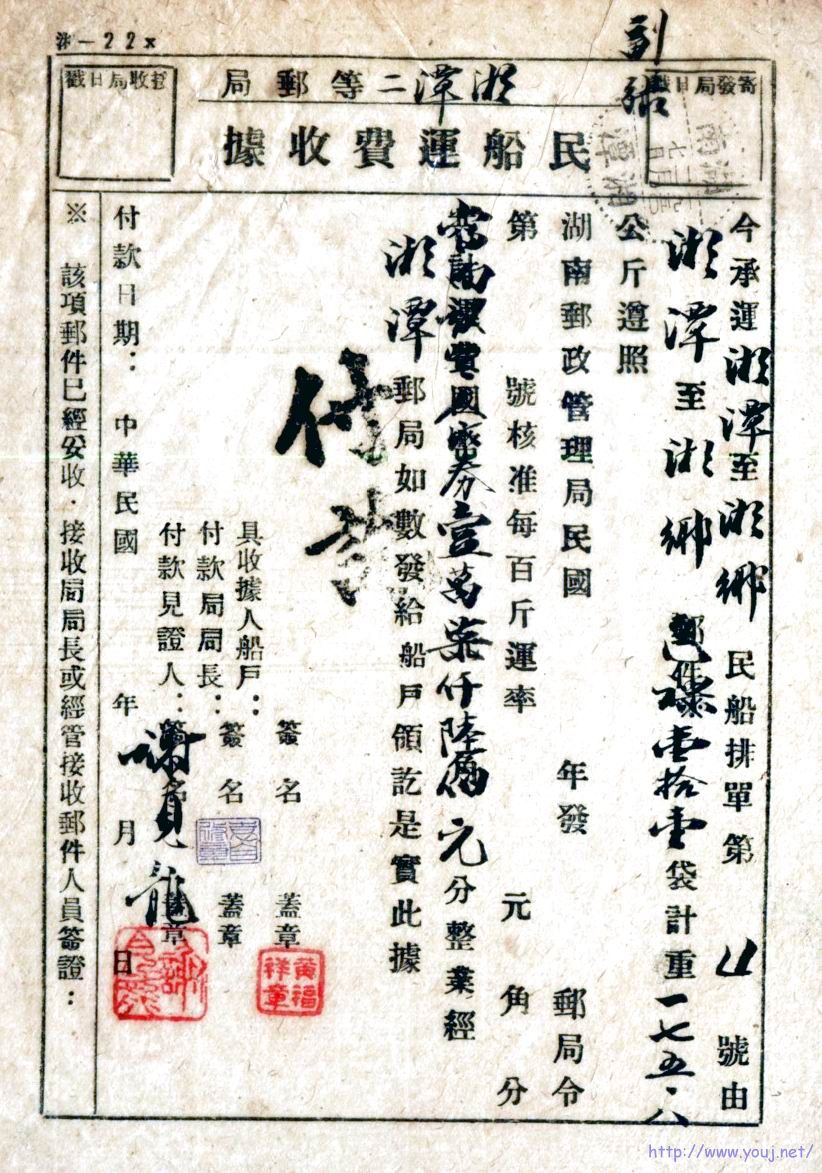 湘-22x
副据
寄發局日戳
湘潭二等郵局
民船運費收據
接收局日戳
今承運湘潭至湘鄉民船排單第 號由
湘潭至湘鄉郵件 壹拾壹袋計重一七五.八
公斤遵照
湖南郵政管理局民國 年發 郵局令
第 號核准每百斤運率 元 角 分
當計運費國幣券壹萬柒仟陸佰元 分整業經
湘潭郵局如數發給船戶領訖是實此據
付訖
具收據人船戶: 簽名 蓋章
黃福祥章
付款局局長: 簽名 蓋章
付款見證人: 簽名 蓋章
謝見龍
付款日期: 中華民國 年 月 日
※ 該項郵件已經妥收.接收局局長或經管接收郵件人員簽證:
http://www.youj.net/